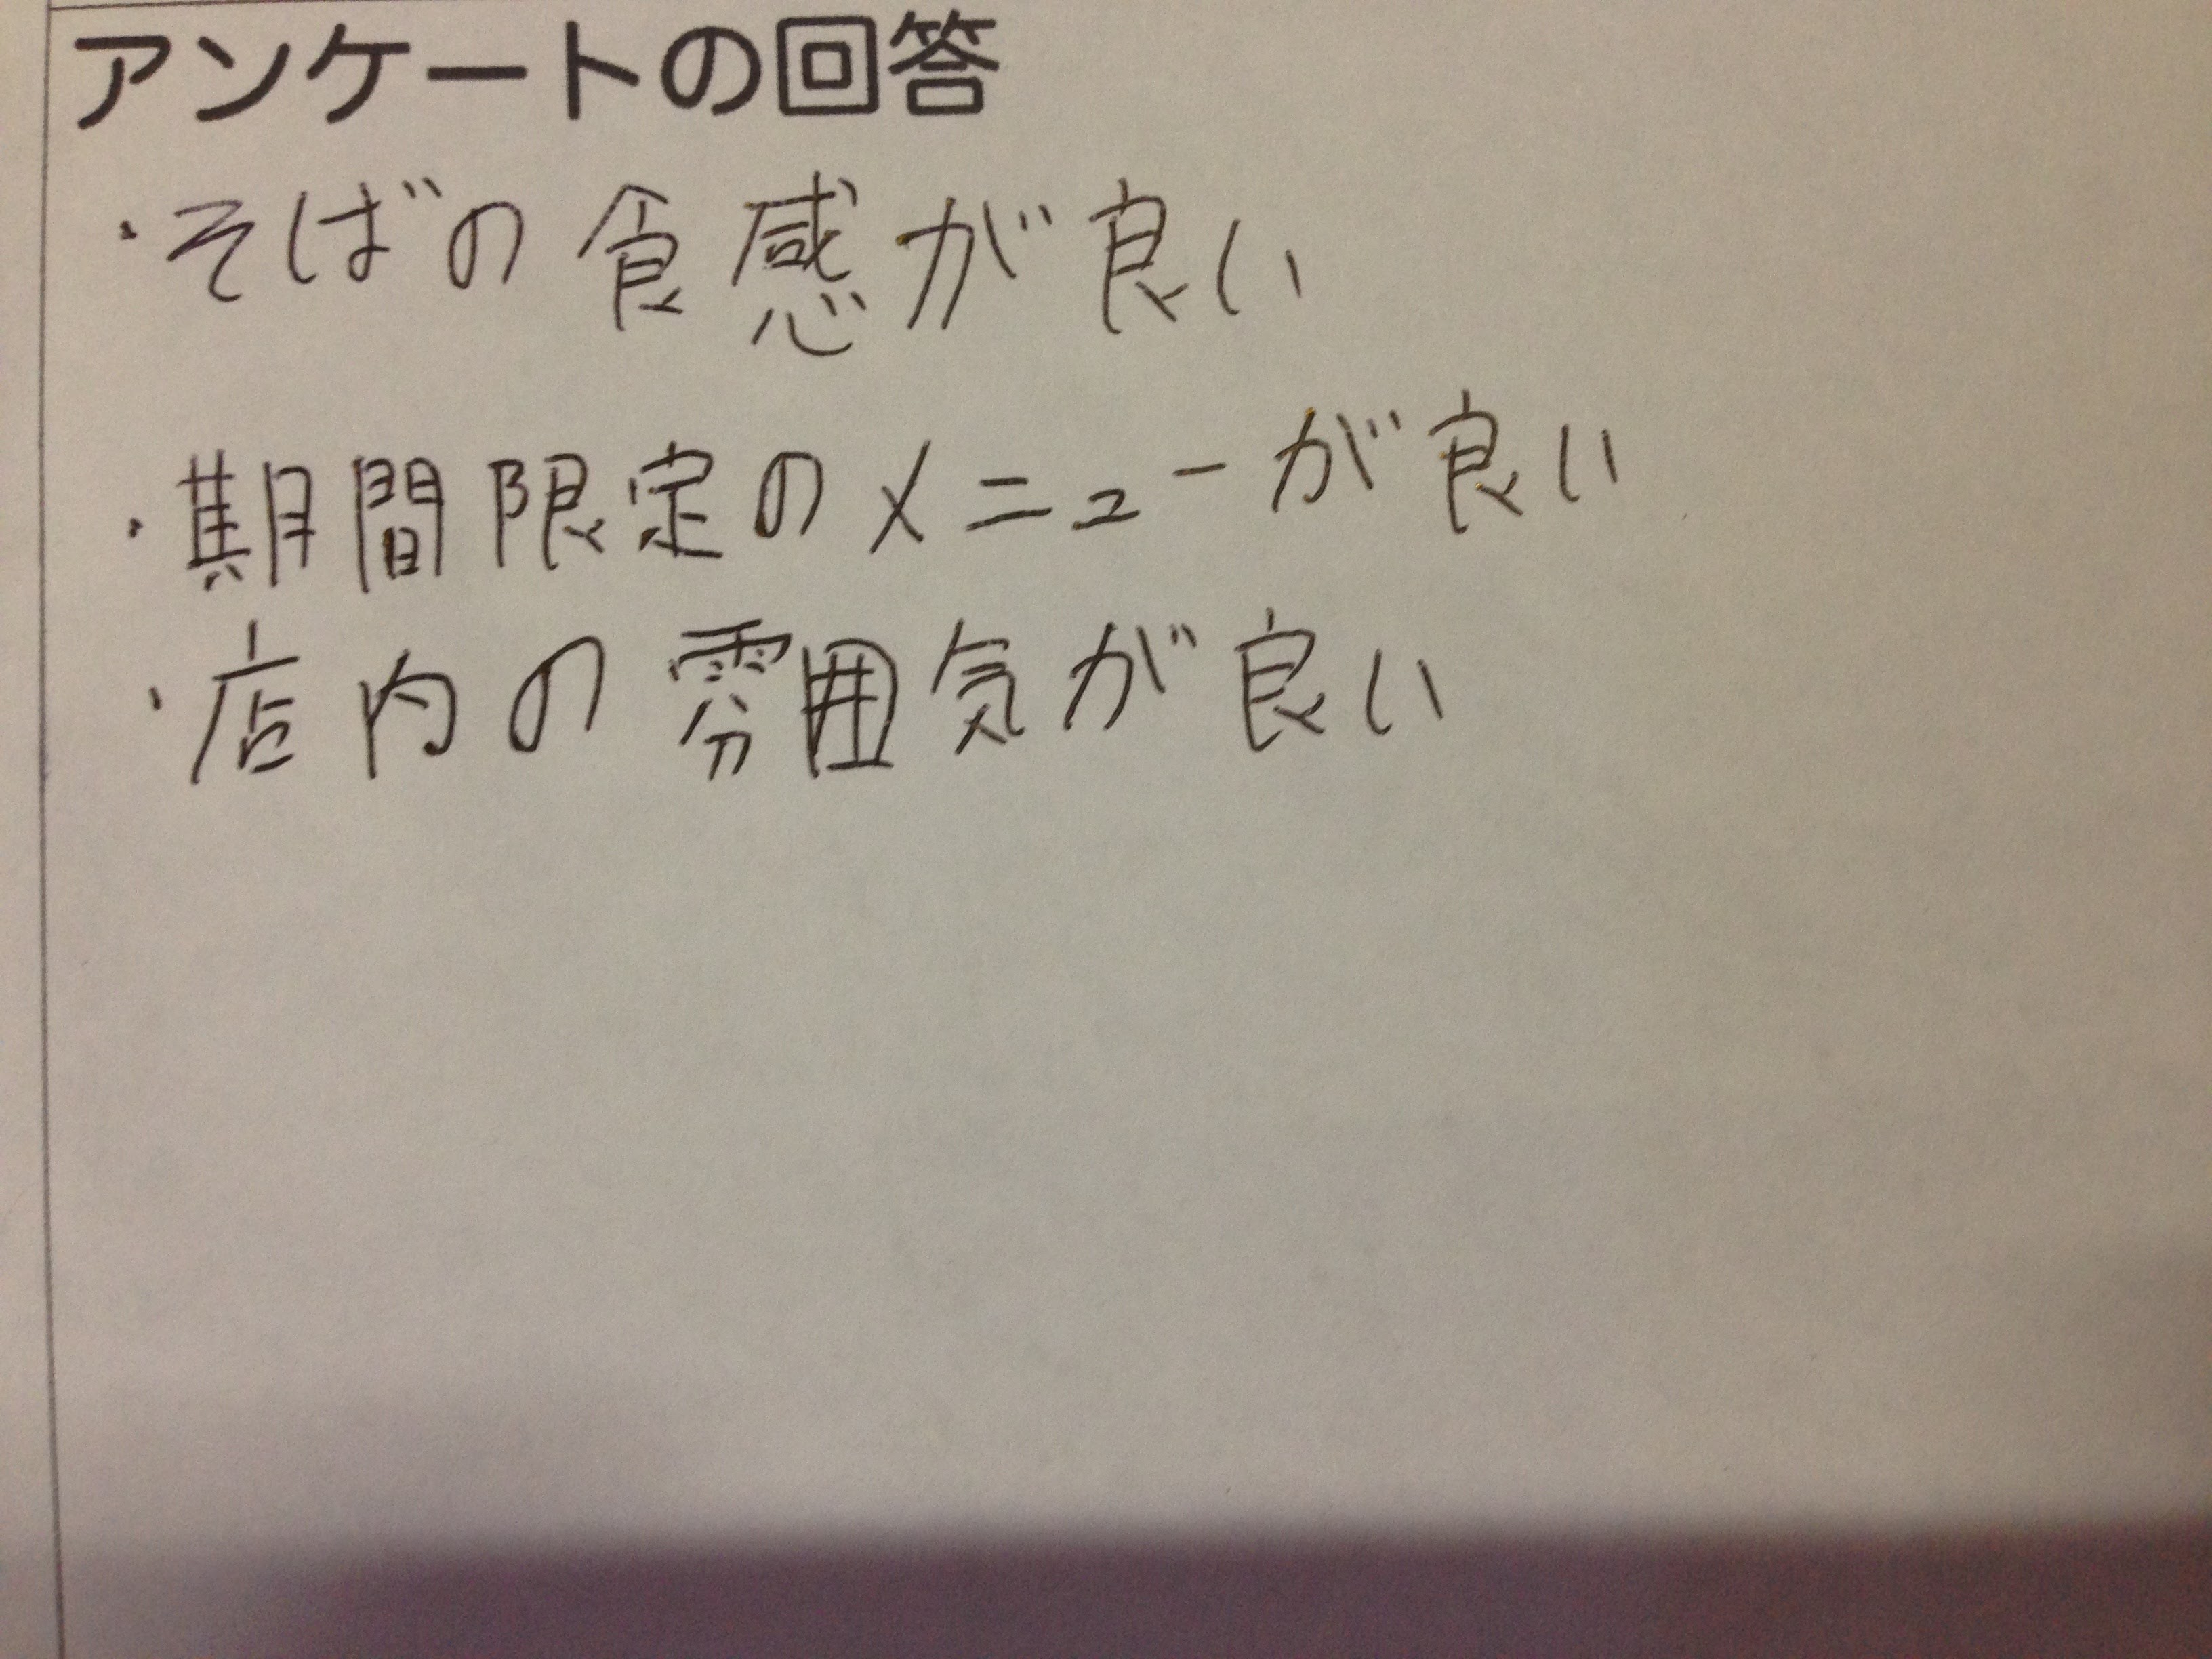 アンケートの回答
・そばの食感が良い
・期間限定のメニューが良い
・店内の雰囲気が良い